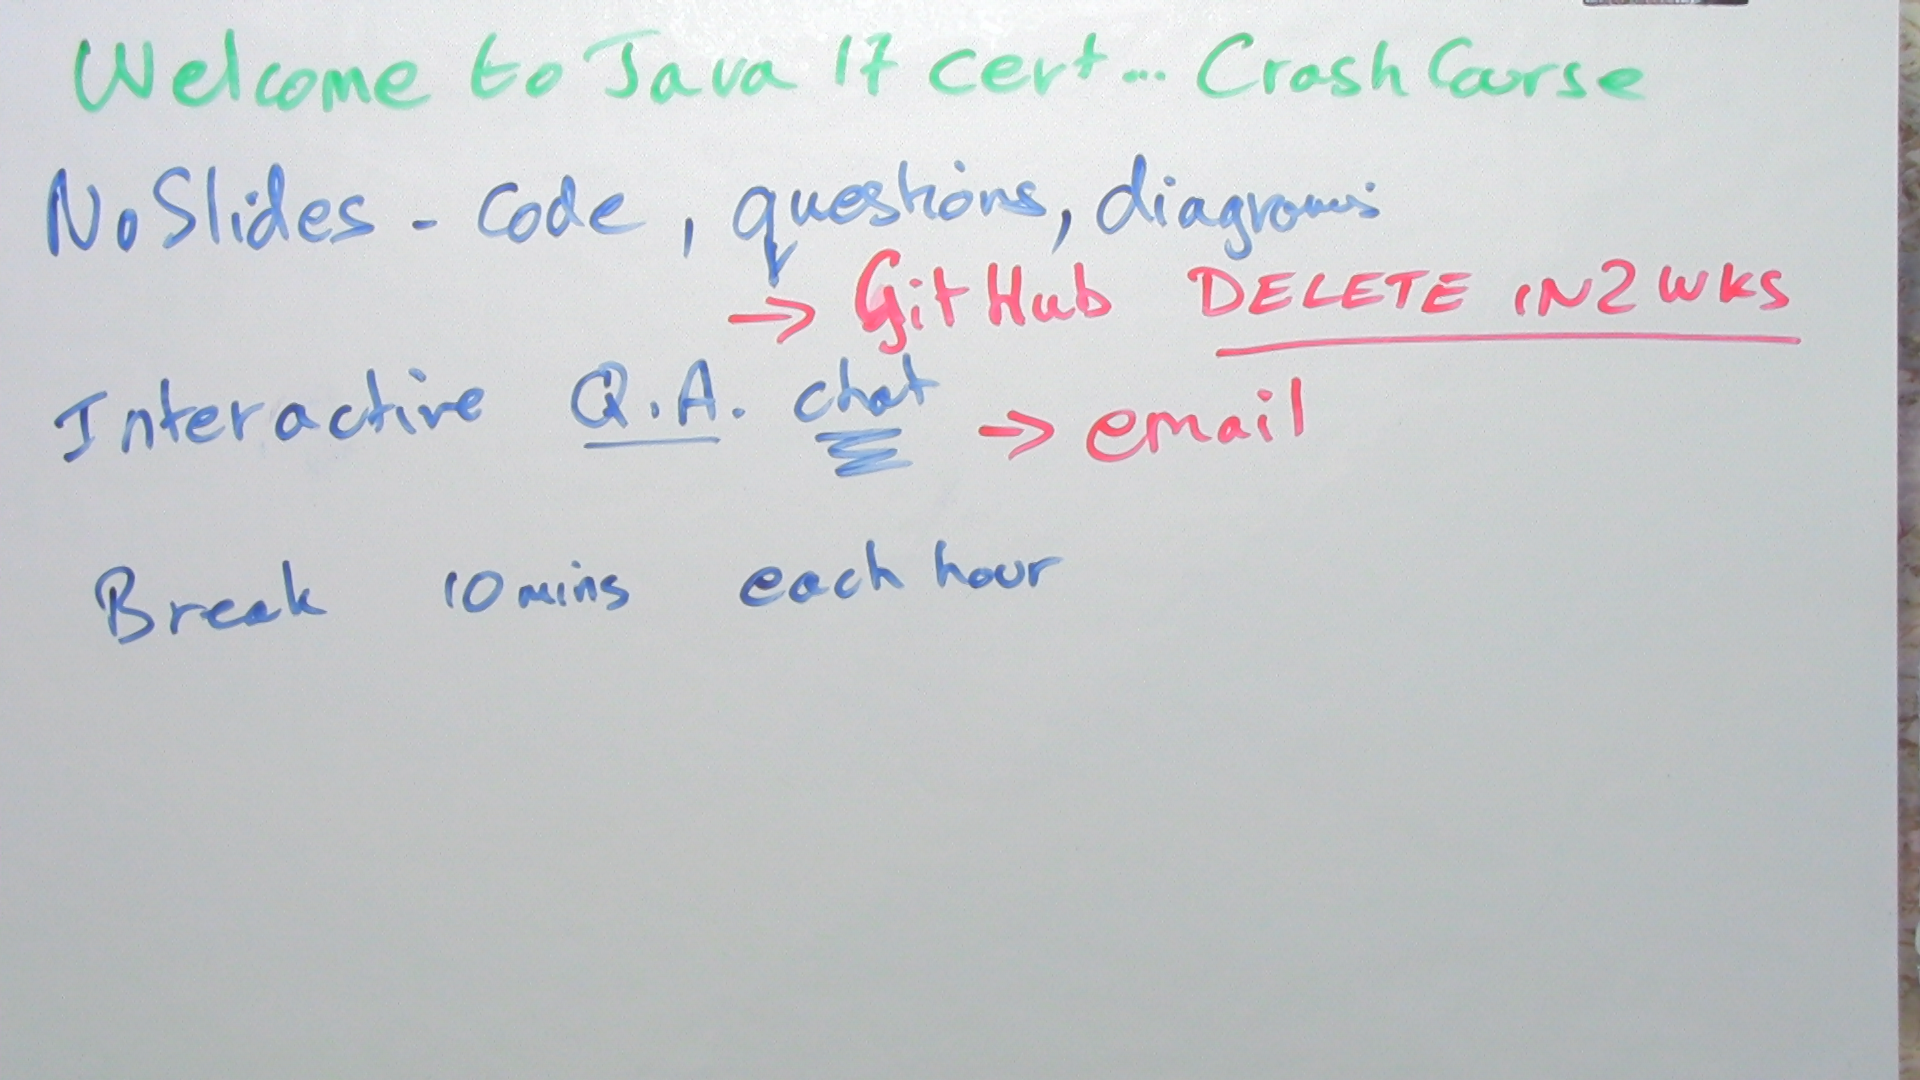 Welcome to Java 17 cert... Crash Course
No Slides - Code, questions, diagrams
→ GitHub DELETE IN 2 WKS
Interactive Q.A. chat → email
Break 10 mins each hour